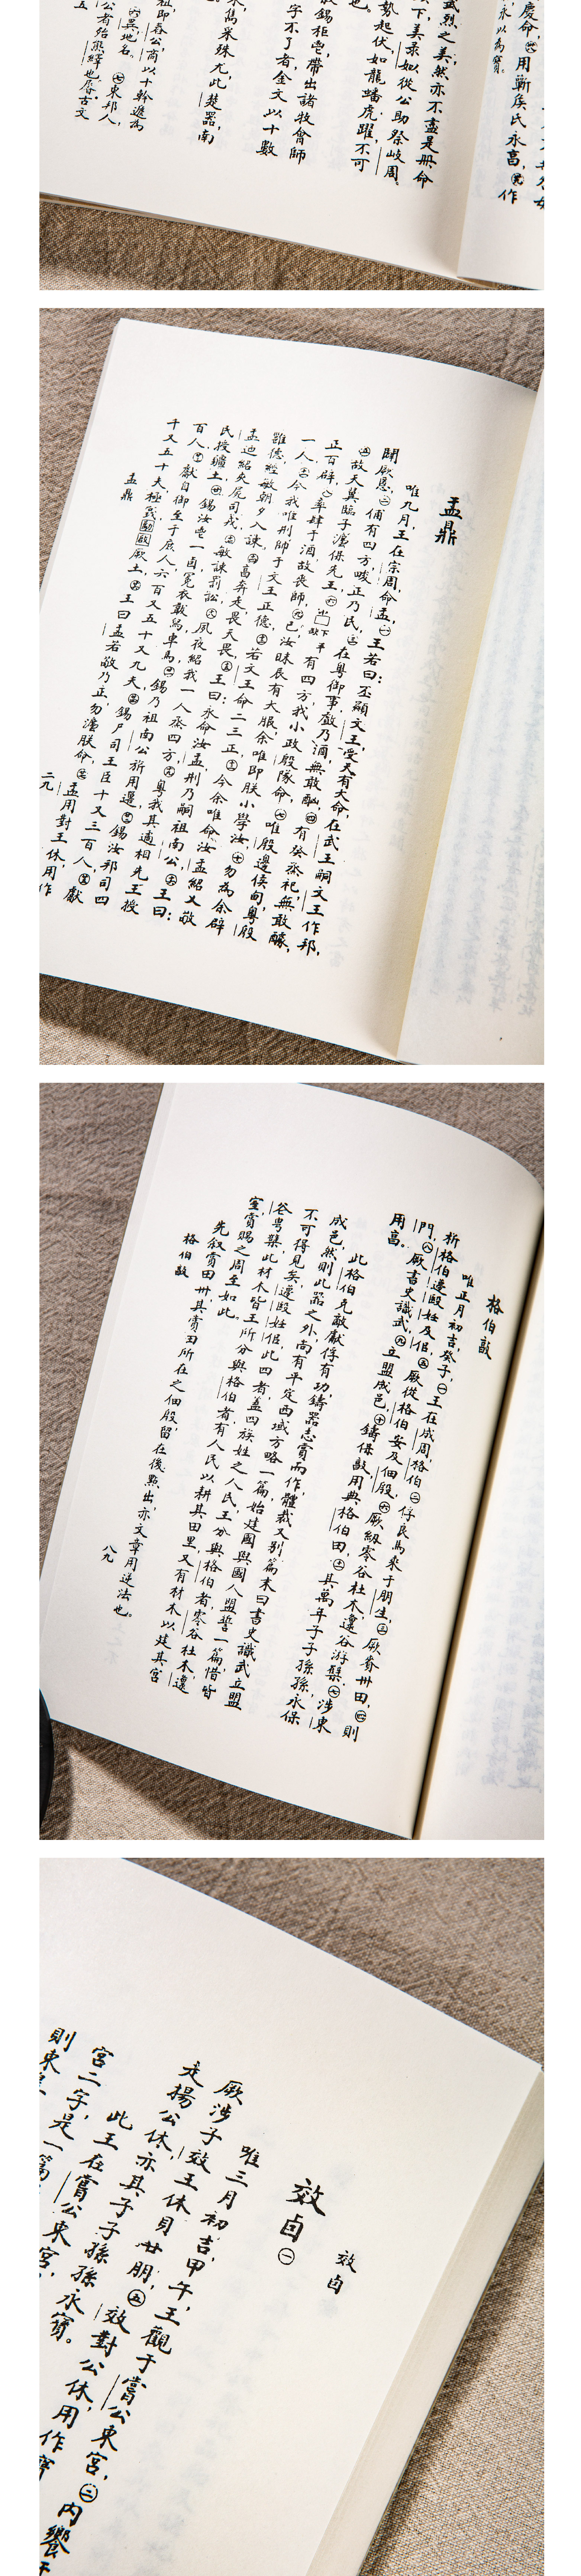 慶命，用蘄侯氏永高，作
永以為寶。
武烈之美，然亦不盡是冊命
以下，美柔如從公助祭岐周。
勢起伏，如龍蟠虎躍，不可
也。
錫柜鬯，帶出諸牧會師
字不了者金文以十數
雋米殊尤，此楚器，南
祖即春公，商以十幹進為
異地名。㊆東邦人，
公者殆熊繹也。
五
盂鼎
唯九月，王在宗周，命盂，㊀王若曰：丕顯文王，受天有大命，在武王嗣文王作邦，
闢厥慝，㊁匍有四方，畯正乃民，㊂在粵御事，乃酒，無敢酗，㊃有烝祀，無敢醻，
㊄故天異臨子，灋保先王，㊅有四方，我小政殷隊命，㊆唯殷邊侯甸粵殷
正百辟，㊇率肆于酒，故喪師，㊈已汝昧辰有大服，余唯即朕小學汝，㊉勿為余辟
一人，今我唯刑師于文王正德，若文王命二三正，今余唯命汝盂紹乂敬
雝德經，敏朝夕入諫，高奔走，畏天畏，王曰：永命汝盂刑乃嗣祖南公，王曰：
盂迺紹夾尸司戎，敏諫罰訟，夙夜紹我一人烝四方，粵我其遹相先王授
民授疆土，錫汝鬯一卣，冕衣韍舄車馬，錫乃祖南公旂用邋，錫汝邦司四
百人，獻自御至于庶人六百又五十又九夫，錫尸司王臣十又三百人，獻
千又五十夫極厥土，王曰：盂若敬乃正，勿灋朕命，盂用對王休，用作
盂鼎
二九
格伯𣪘
唯正月初吉，癸子，㊀王在成周，格伯㊁俘良馬乘于朋生，㊂厥賚卅田，㊃則
析格伯邊殷妊及佢，㊄厥從格伯安及佃殷，㊅厥紉零谷杜木邊谷游桑，㊆涉東
門，㊇厥書史識武，㊈立盟成邑，㊉鑄保𣪘，用典格伯田，其萬年子子孫孫永保
用高。
此格伯克敵獻俘有功，鑄器志賞而作，體裁又別，篇末曰書史識武立盟
成邑，然則此器之外，尚有平定西域方略一篇，始建國與國人盟誓一篇，惜皆
不可得見矣，邊殷妊佢，此四者蓋四族姓之人民，王分與格伯者，零谷杜木邊
谷粵桑，此材木皆王所分與格伯者，有人民以耕其田里，又有材木以建其宮
室，賞賜之周至如此。
先叙賞田卅，其賞田所在之佃殷，留在後點出，亦文章用逆法也。
格伯𣪘
八九
效卣
效卣㊀
唯三月初吉，甲午，王觀于嘗公東宮，㊁內饗于
厥涉子效王休貝廿朋，㊄效對公休，用作寶
走揚公休，亦其子子孫孫永寶。
此王在嘗公東宮，
宮二字，是一篇
則東